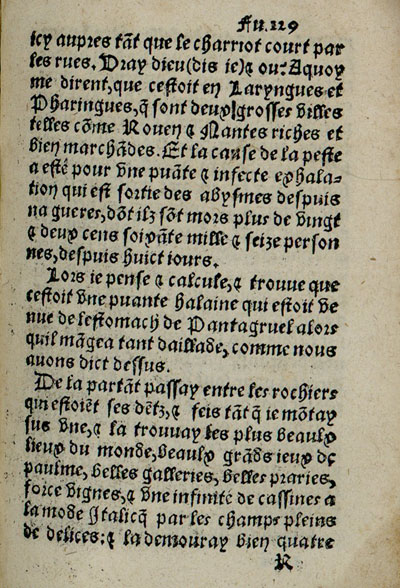 Fu.129
icy aupres tãt que le charriot court par
les rues. Vray dieu(dis ie)⁊ ou: Aquoy
me dirent, que cestoit en Laryngues et
Pharingues, q̃ sont deux grosses villes
telles cõme Rouen ⁊ Nantes riches et
bien marchãdes. Et la cause de la peste
a esté pour vne puãte ⁊ infecte exhala-
tion qui est sortie des abysmes despuis
na gueres, dõt ilz sõt mors plus de vingt
⁊ deux cens soixãte mille ⁊ seize person
nes, despuis huict iours.
Lors ie pense ⁊ calcule, ⁊ trouue que
cestoit vne puante halaine qui estoit ve
nue de lestomach de Pantagruel alors
quil mãgea tant daillade, comme nous
auons dict dessus.
De la partãt passay entre les rochiers
qui estoiẽt ses dẽtz, ⁊ feis tãt q̃ ie mõtay
sus vne, ⁊ la trouuay les plus beaulx
lieux du monde, beaulx grãds ieux de
paulme, belles galleries, belles praries,
force vignes, ⁊ vne infinité de cassines a
la mode Italicq̃ par les champs pleins
de delices: ⁊ la demouray bien quatre
R